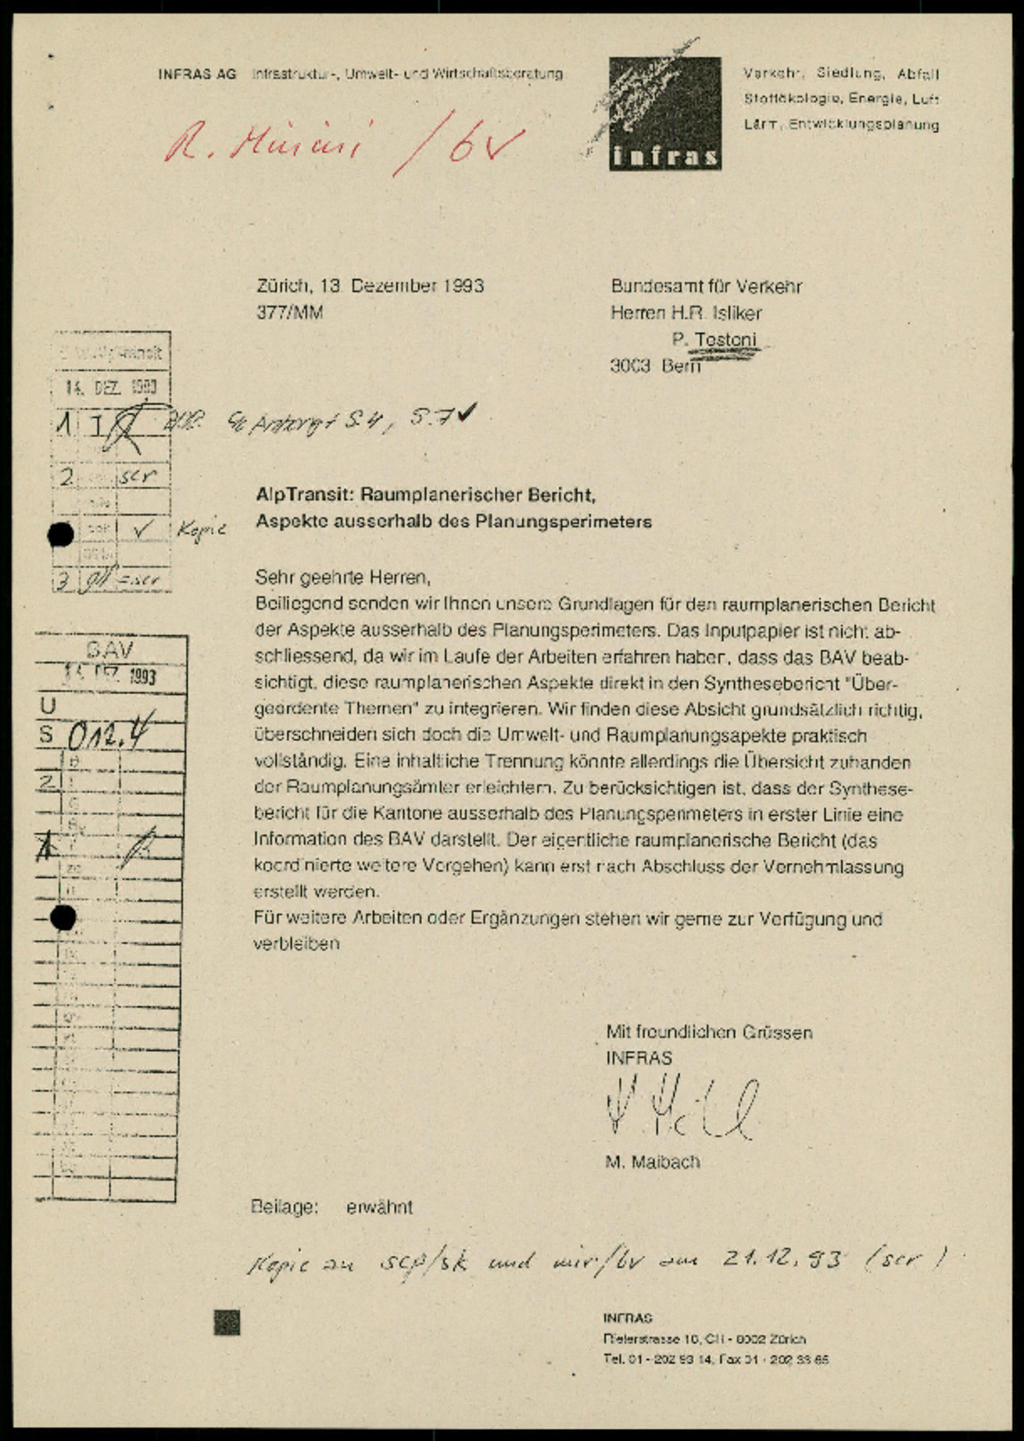 INFRAS AG Infrastruktur-, Umwelt- und Wirtschaftsberatung
infras
Verkehr, Siedlung, Abfall
Stoffökologie, Energie, Luft
Lärm, Entwicklungsplanung
R. / bv
Zürich, 13. Dezember 1993
377/MM
Bundesamt für Verkehr
Herren H.R. Isliker
P. Testoni
3003 Bern
14. DEZ. 1993
1 I
S.4, S.7 ✓
2 scr
✓ Kopie
3
AlpTransit: Raumplanerischer Bericht,
Aspekte ausserhalb des Planungsperimeters
Sehr geehrte Herren,
Beiliegend senden wir Ihnen unsere Grundlagen für den raumplanerischen Bericht
der Aspekte ausserhalb des Planungsperimeters. Das Inputpapier ist nicht ab-
schliessend, da wir im Laufe der Arbeiten erfahren haben, dass das BAV beab-
sichtigt, diese raumplanerischen Aspekte direkt in den Synthesebericht "Über-
geordente Themen" zu integrieren. Wir finden diese Absicht grundsätzlich richtig,
überschneiden sich doch die Umwelt- und Raumplanungsapekte praktisch
vollständig. Eine inhaltliche Trennung könnte allerdings die Übersicht zuhanden
der Raumplanungsämter erleichtern. Zu berücksichtigen ist, dass der Synthese-
bericht für die Kantone ausserhalb des Planungsperimeters in erster Linie eine
Information des BAV darstellt. Der eigentliche raumplanerische Bericht (das
koordinierte weitere Vorgehen) kann erst nach Abschluss der Vernehmlassung
erstellt werden.
Für weitere Arbeiten oder Ergänzungen stehen wir gerne zur Verfügung und
verbleiben
BAV
DEZ. 1993
U
S 012.4
Z
Mit freundlichen Grüssen
INFRAS
M. Maibach
Beilage: erwähnt
Kopie an scp/sk und mir/bv am 21.12.93 (scr)
INFRAS
Rieterstrasse 18, CH - 8002 Zürich
Tel. 01 - 202 93 14, Fax 01 - 202 33 65